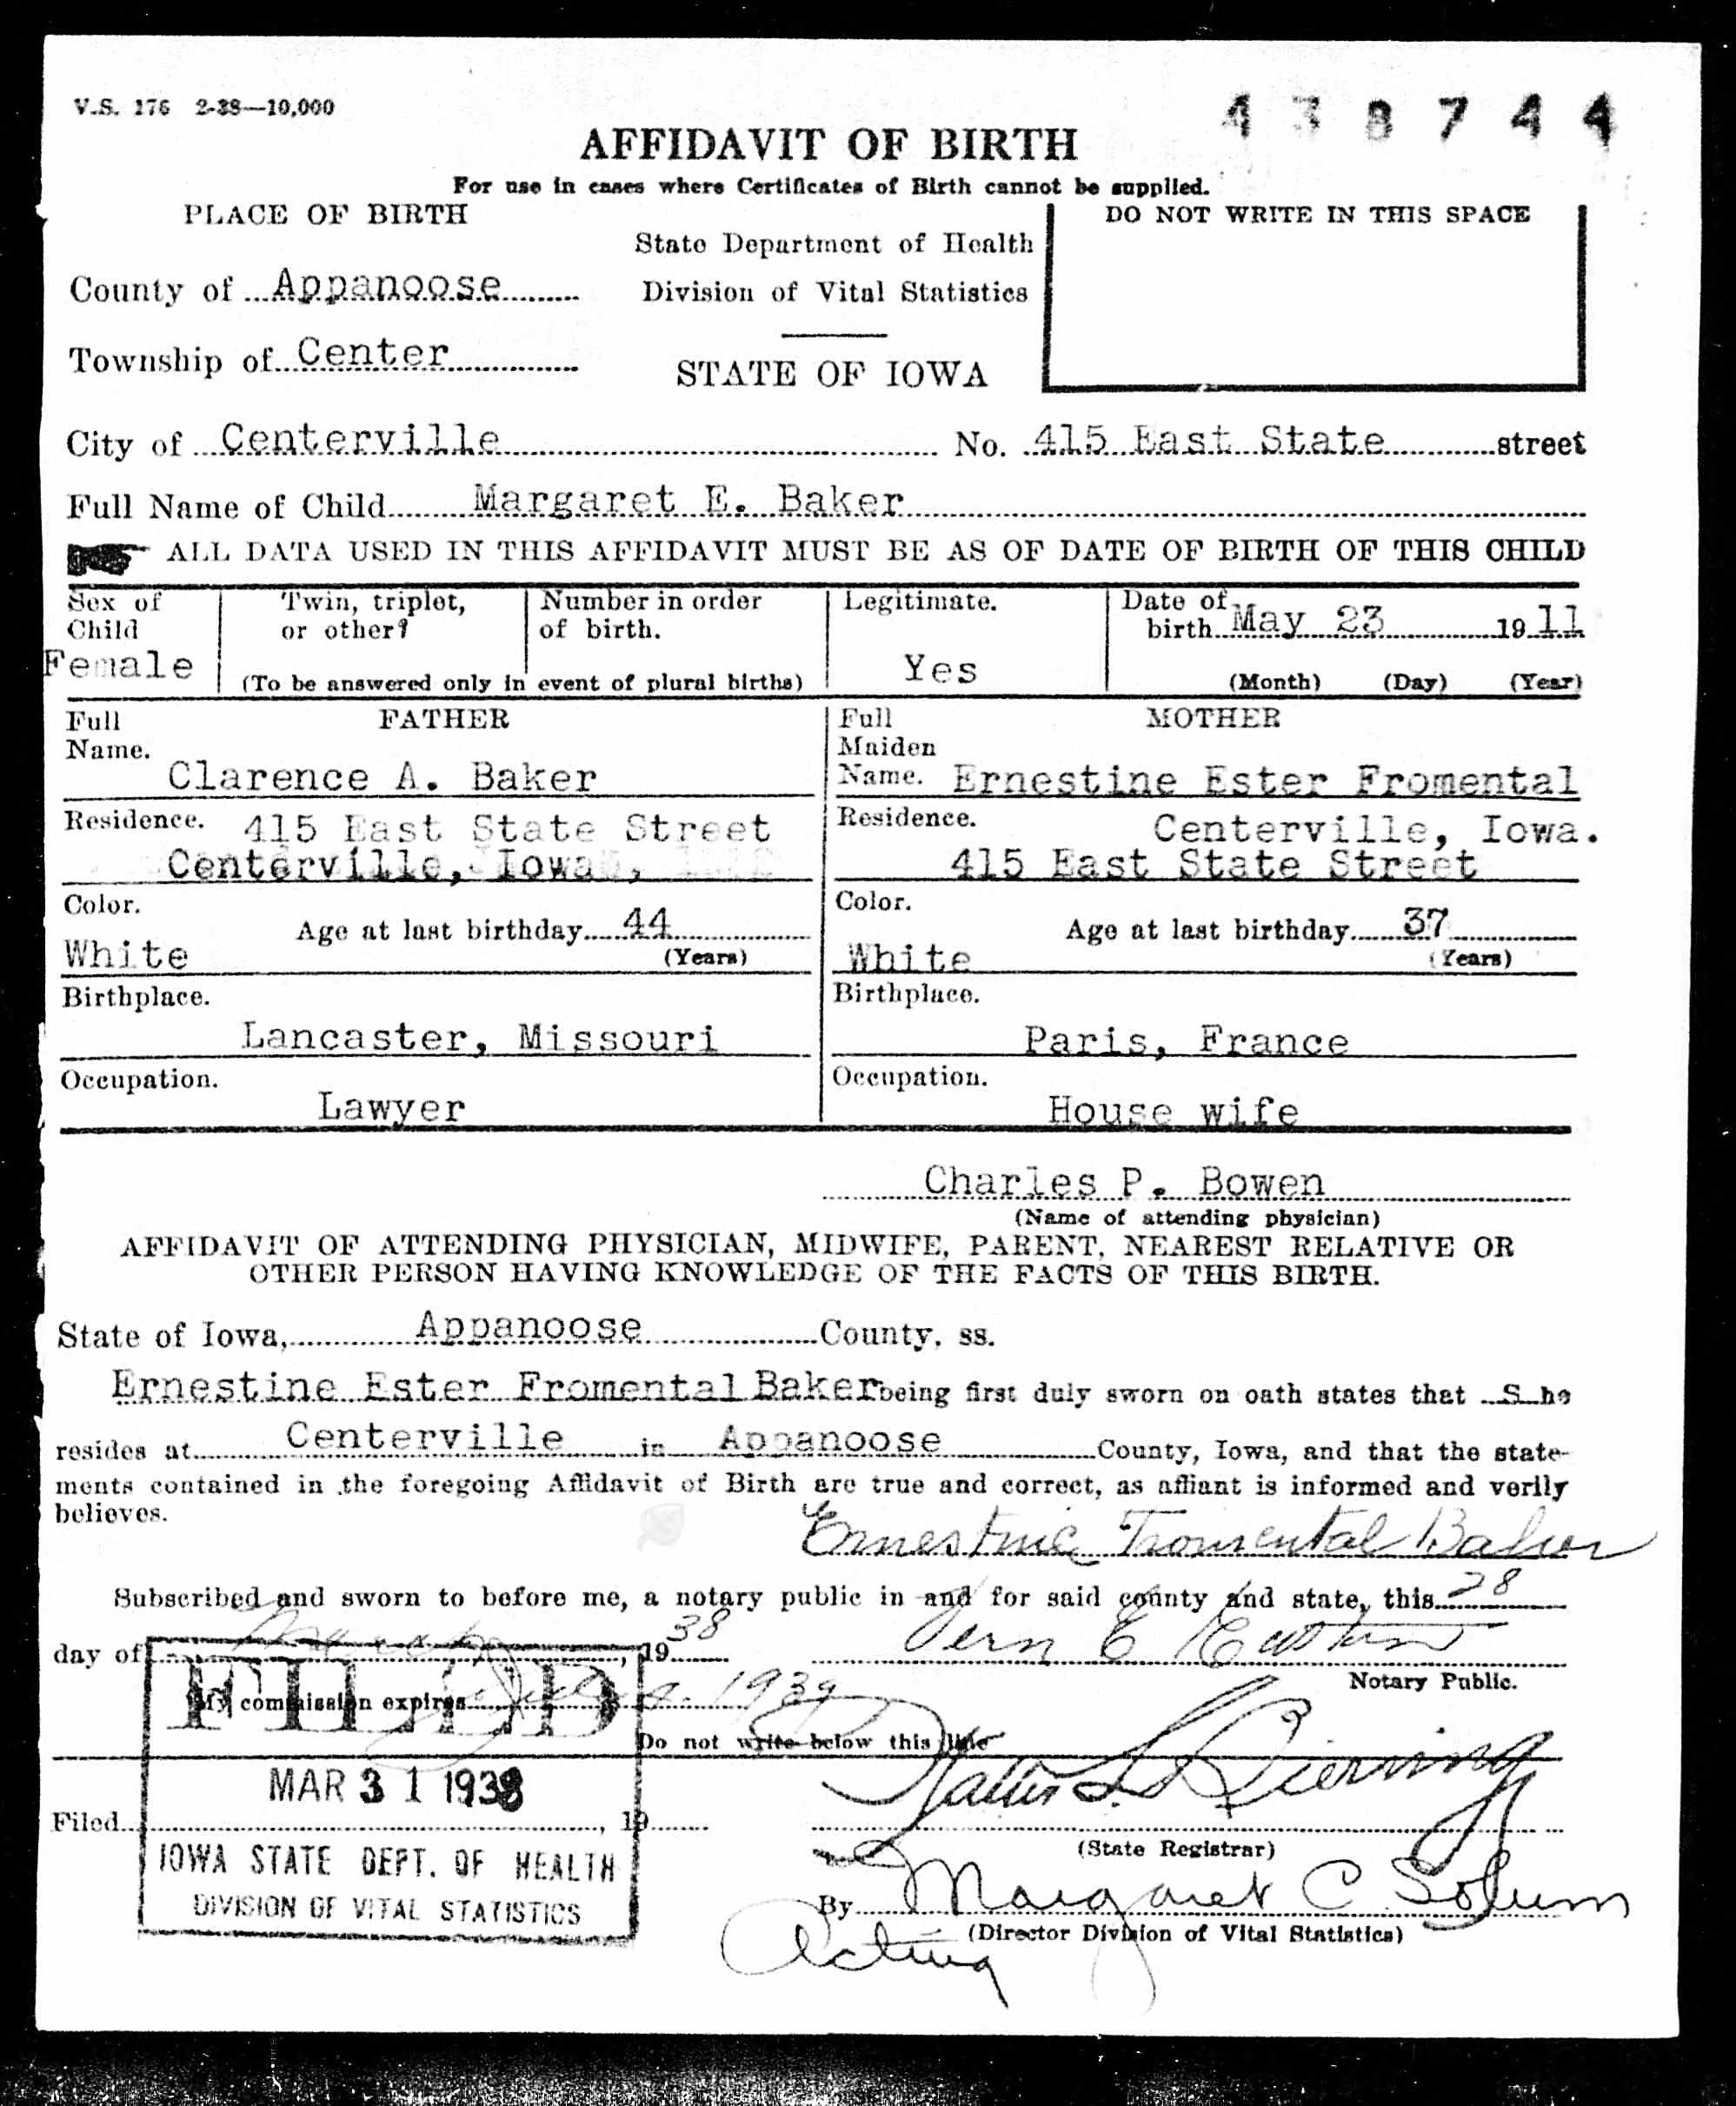 V.S. 176 2-38—10,000
438744
AFFIDAVIT OF BIRTH
For use in cases where Certificates of Birth cannot be supplied.
PLACE OF BIRTH
DO NOT WRITE IN THIS SPACE
State Department of Health
County of Appanoose
Division of Vital Statistics
Township of Center
STATE OF IOWA
City of Centerville No. 415 East State street
Full Name of Child Margaret E. Baker
ALL DATA USED IN THIS AFFIDAVIT MUST BE AS OF DATE OF BIRTH OF THIS CHILD
Sex of Child
Female
Twin, triplet, or other?
Number in order of birth.
(To be answered only in event of plural births)
Legitimate.
Yes
Date of birth May 23 1911
(Month) (Day) (Year)
FATHER
Full Name.
Clarence A. Baker
Residence. 415 East State Street
Centerville, Iowa,
Color.
White
Age at last birthday 44
(Years)
Birthplace.
Lancaster, Missouri
Occupation.
Lawyer
MOTHER
Full Maiden Name. Ernestine Ester Fromental
Residence. Centerville, Iowa.
415 East State Street
Color.
White
Age at last birthday 37
(Years)
Birthplace.
Paris, France
Occupation.
House wife
Charles P. Bowen
(Name of attending physician)
AFFIDAVIT OF ATTENDING PHYSICIAN, MIDWIFE, PARENT, NEAREST RELATIVE OR
OTHER PERSON HAVING KNOWLEDGE OF THE FACTS OF THIS BIRTH.
State of Iowa, Appanoose County, ss.
Ernestine Ester Fromental Baker being first duly sworn on oath states that She
resides at Centerville in Appanoose County, Iowa, and that the state-
ments contained in the foregoing Affidavit of Birth are true and correct, as affiant is informed and verily
believes.
Ernestine Fromental Baker
Subscribed and sworn to before me, a notary public in and for said county and state, this 28
day of March, 1938
Vern C
Notary Public.
My commission expires July 1939
Do not write below this line
FILED
MAR 31 1938
Filed , 19
IOWA STATE DEPT. OF HEALTH
DIVISION OF VITAL STATISTICS
Walter L. Bierring
(State Registrar)
By Margaret C Solum
(Director Division of Vital Statistics)
Acting